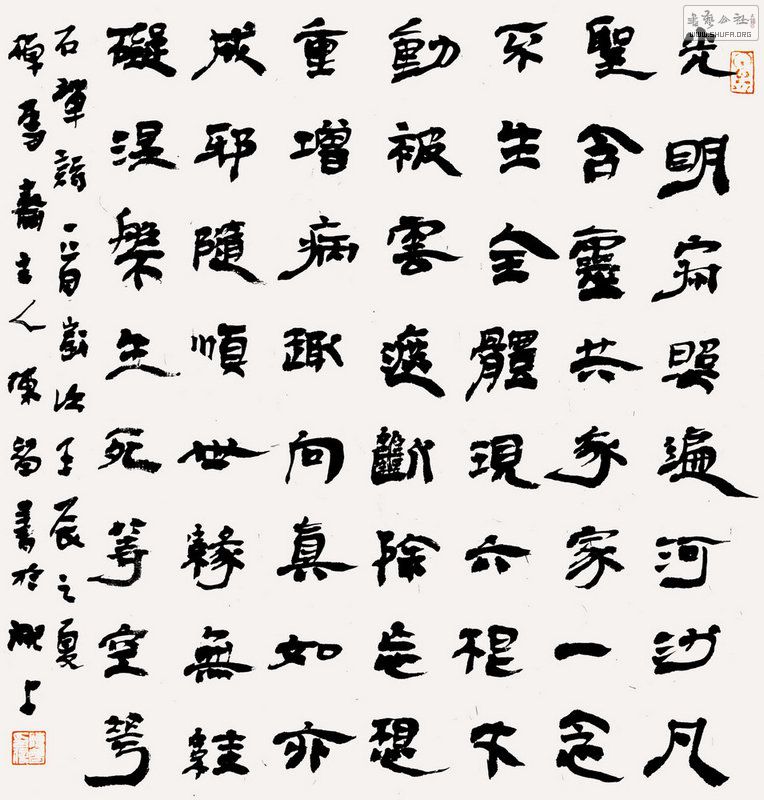 光明寂照遍河沙凡
聖含靈共我家一念
不生全體現六根才
動被雲遮斷除忘想
重增病趣向真如亦
成邪隨順世緣無絓
礙涅槃生死等空花
石頌一首歲次壬辰之夏
禪馬齋主人陳書於上
书艺公社
WWW.SHUFA.ORG